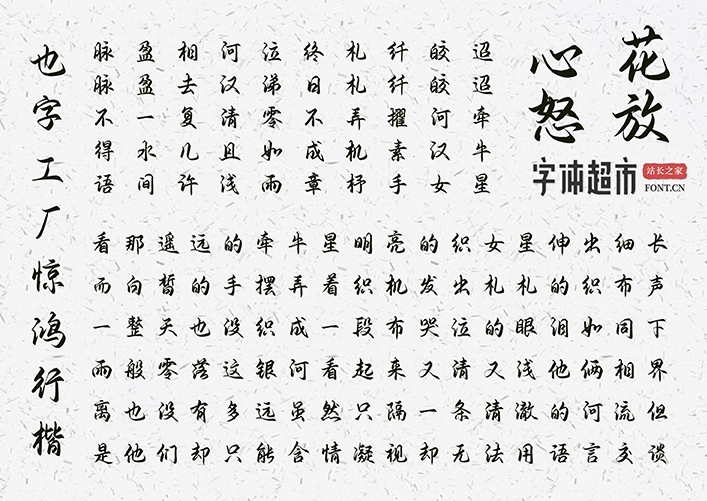 心花
怒放
字体超市
站长之家
FONT.CN
也字工厂惊鸿行楷
迢迢牵牛星
皎皎河汉女
纤纤擢素手
札札弄机杼
终日不成章
泣涕零如雨
河汉清且浅
相去复几许
盈盈一水间
脉脉不得语
看那遥远的牵牛星明亮的织女星伸出细长
而向皙的手摆弄着织机发出札札的织布声
一整天也没织成一段布哭泣的眼泪如同下
雨般零落这银河看起来又清又浅他俩相界
离也没有多远虽然只隔一条清澈的河流但
是他们却只能含情凝视却无法用语言交谈